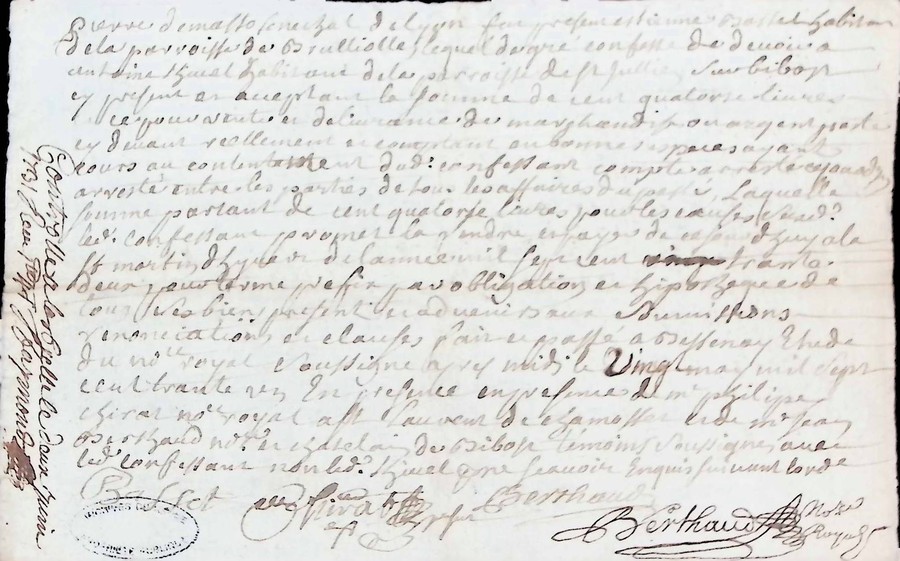 pierre demasso senechal de lyon fut present estienne Basset habitan
de la parroisse de Brulliolles lequel de gré confesse de devoir a
antoine Thivel habitant de la parroisse de st Jullien sur bibost
cy present et acceptant la somme de cent quatorse livres
ce pour vente et delivrance de marchandise ou argent preste
cy devant reellement et comptant en bonnes especes ayant
cours au contentement dud: confessant compte arresté
arresté entre les parties de tous les affaires du passé Laquelle
somme partant de cent quatorse livres pour les causes susd:
led: confessant promet la rendre et payer de ce jourdhuy a la
st martin dhyver de lannee mil sept cent trante
deux pour terme prefix par obligation et hipotheque de
tous ses biens present et advenir aux soumissions
renonciations et clauses fait et passé a Bessenay Etude
du nore royal soussigné apres midi le Vingt may mil sept
cent trante un En presence en presence de mr philipe
Chirat nore royal a st laurent de chamosset et de mr jean
Berthaud nore et chatelain de Bibost temoins soussignes avec
led: confessant non led: Thivel pour ne scavoir Enquis suivant lorde
Basset Chirat present Berthaud
Berthaud Nore Royal
Controllé a larbresle le deux juin
1731 Reçu Raymond